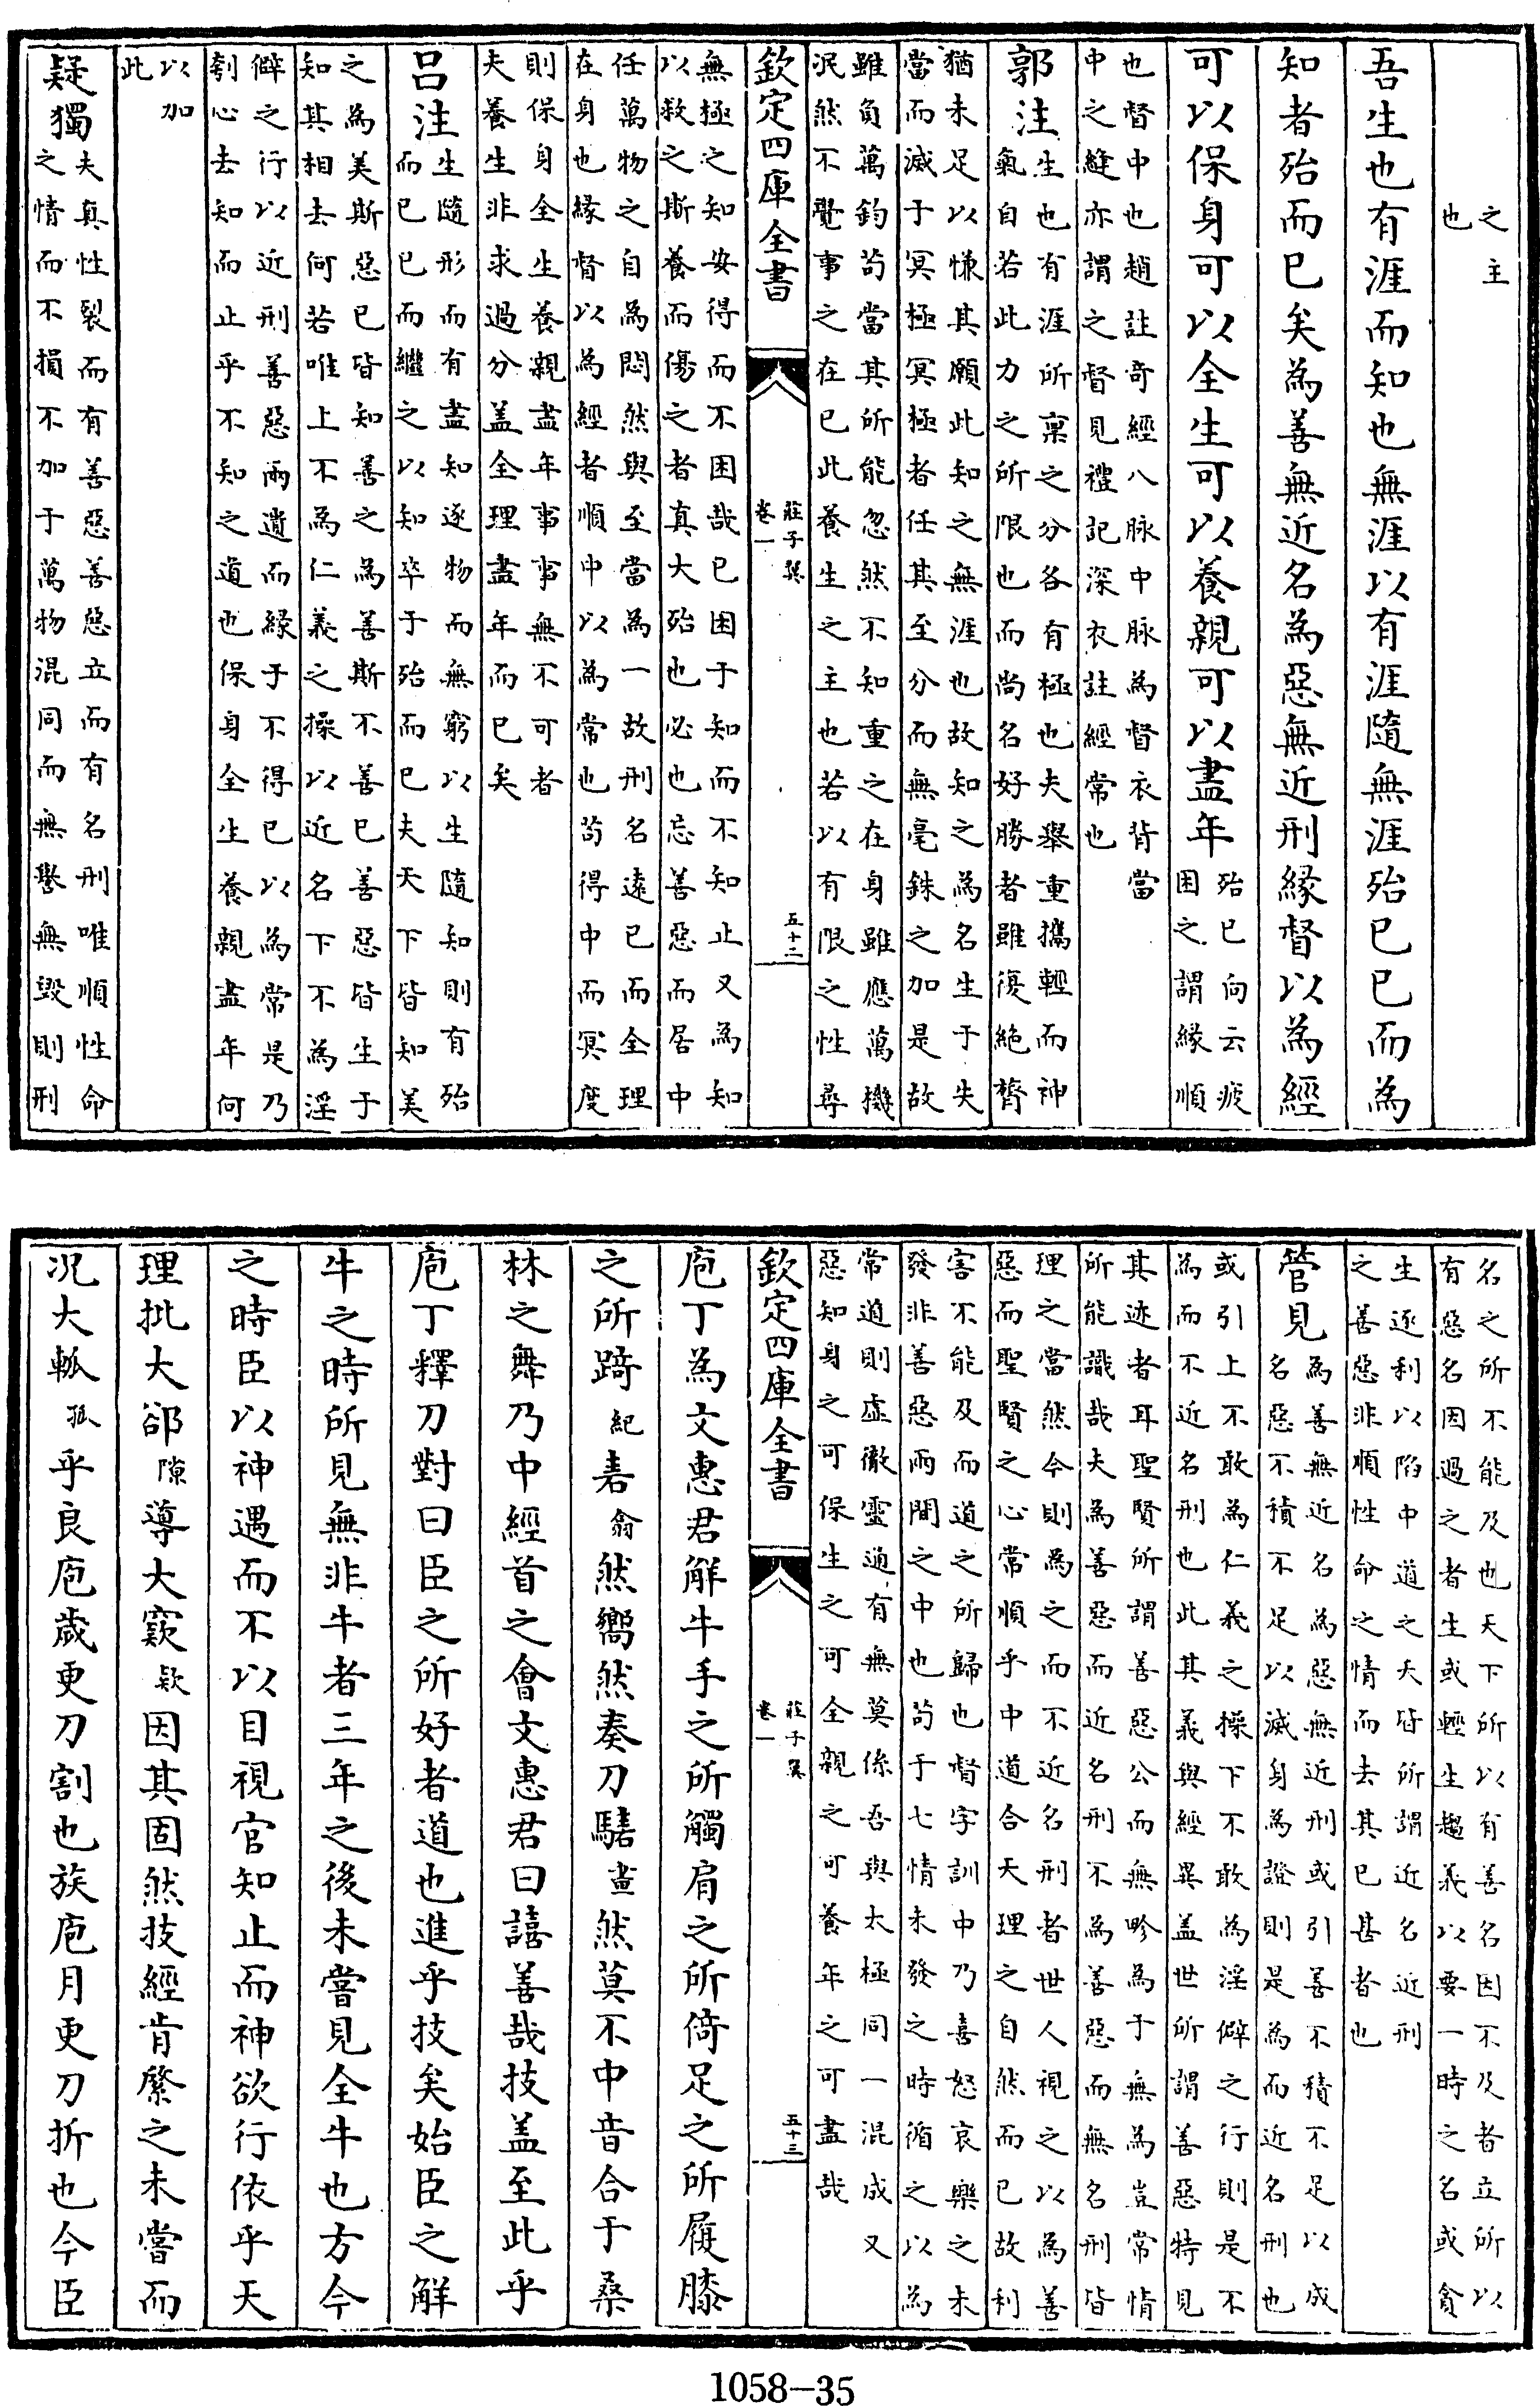 之主
也
吾生也有涯而知也無涯以有涯隨無涯殆已已而為
知者殆而已矣為善無近名為惡無近刑緣督以為經
可以保身可以全生可以養親可以盡年
殆已向云疲
困之謂緣順
也督中也趙註奇經八脉中脉為督衣背當
中之縫亦謂之督見禮記深衣註經常也
郭注
生也有涯所稟之分各有極也夫舉重攜輕而神
氣自若此力之所限也而尚名好勝者雖復絶膂
猶未足以慊其願此知之無涯也故知之為名生于失
當而滅于冥極冥極者任其至分而無毫銖之加是故
雖負萬鈞茍當其所能忽然不知重之在身雖應萬機
泯然不覺事之在已此養生之主也若以有限之性尋
欽定四庫全書
莊子翼
卷一
五十二
無極之知安得而不困哉已困于知而不知止又為知
以救之斯養而傷之者真大殆也必也忘善惡而居中
任萬物之自為悶然與至當為一故刑名遠已而全理
在身也緣督以為經者順中以為常也茍得中而冥度
則保身全生養親盡年事事無不可者
夫養生非求過分盖全理盡年而已矣
吕注
生隨形而有盡知逐物而無窮以生隨知則有殆
而已已而繼之以知卒于殆而已夫天下皆知美
之為美斯惡已皆知善之為善斯不善已善惡皆生于
知其相去何若唯上不為仁義之操以近名下不為淫
僻之行以近刑善惡兩遺而緣于不得已以為常是乃
刳心去知而止乎不知之道也保身全生養親盡年何
以加
此
疑獨
夫真性裂而有善惡善惡立而有名刑唯順性命
之情而不損不加于萬物混同而無譽無毀則刑
名之所不能及也天下所以有善名因不及者立所以
有惡名因過之者生或輕生趨義以要一時之名或貪
生逐利以陷中道之夭皆所謂近名近刑
之善惡非順性命之情而去其已甚者也
管見
為善無近名為惡無近刑或引善不積不足以成
名惡不積不足以滅身為證則是為而近名刑也
或引上不敢為仁義之操下不敢為淫僻之行則是不
為而不近名刑也此其義與經異盖世所謂善惡特見
其迹者耳聖賢所謂善惡公而無畛為于無為豈常情
所能識哉夫為善惡而近名刑不為善惡而無名刑皆
理之當然今則為之而不近名刑者世人視之以為善
惡而聖賢之心常順乎中道合天理之自然而已故利
害不能及而道之所歸也督字訓中乃喜怒哀樂之未
發非善惡兩間之中也茍于七情未發之時循之以為
常道則虚徹靈通有無莫係吾與太極同一混成又
惡知身之可保生之可全親之可養年之可盡哉
欽定四庫全書
莊子翼
卷一
五十三
庖丁為文惠君解牛手之所觸肩之所倚足之所履膝
之所踦紀砉翕然嚮然奏刀騞畫然莫不中音合于桑
林之舞乃中經首之會文惠君曰譆善哉技盖至此乎
庖丁釋刀對曰臣之所好者道也進乎技矣始臣之解
牛之時所見無非牛者三年之後未嘗見全牛也方今
之時臣以神遇而不以目視官知止而神欲行依乎天
理批大郤隙導大窾欵因其固然技經肯綮之未嘗而
况大軱孤乎良庖歲更刀割也族庖月更刀折也今臣
1058-35